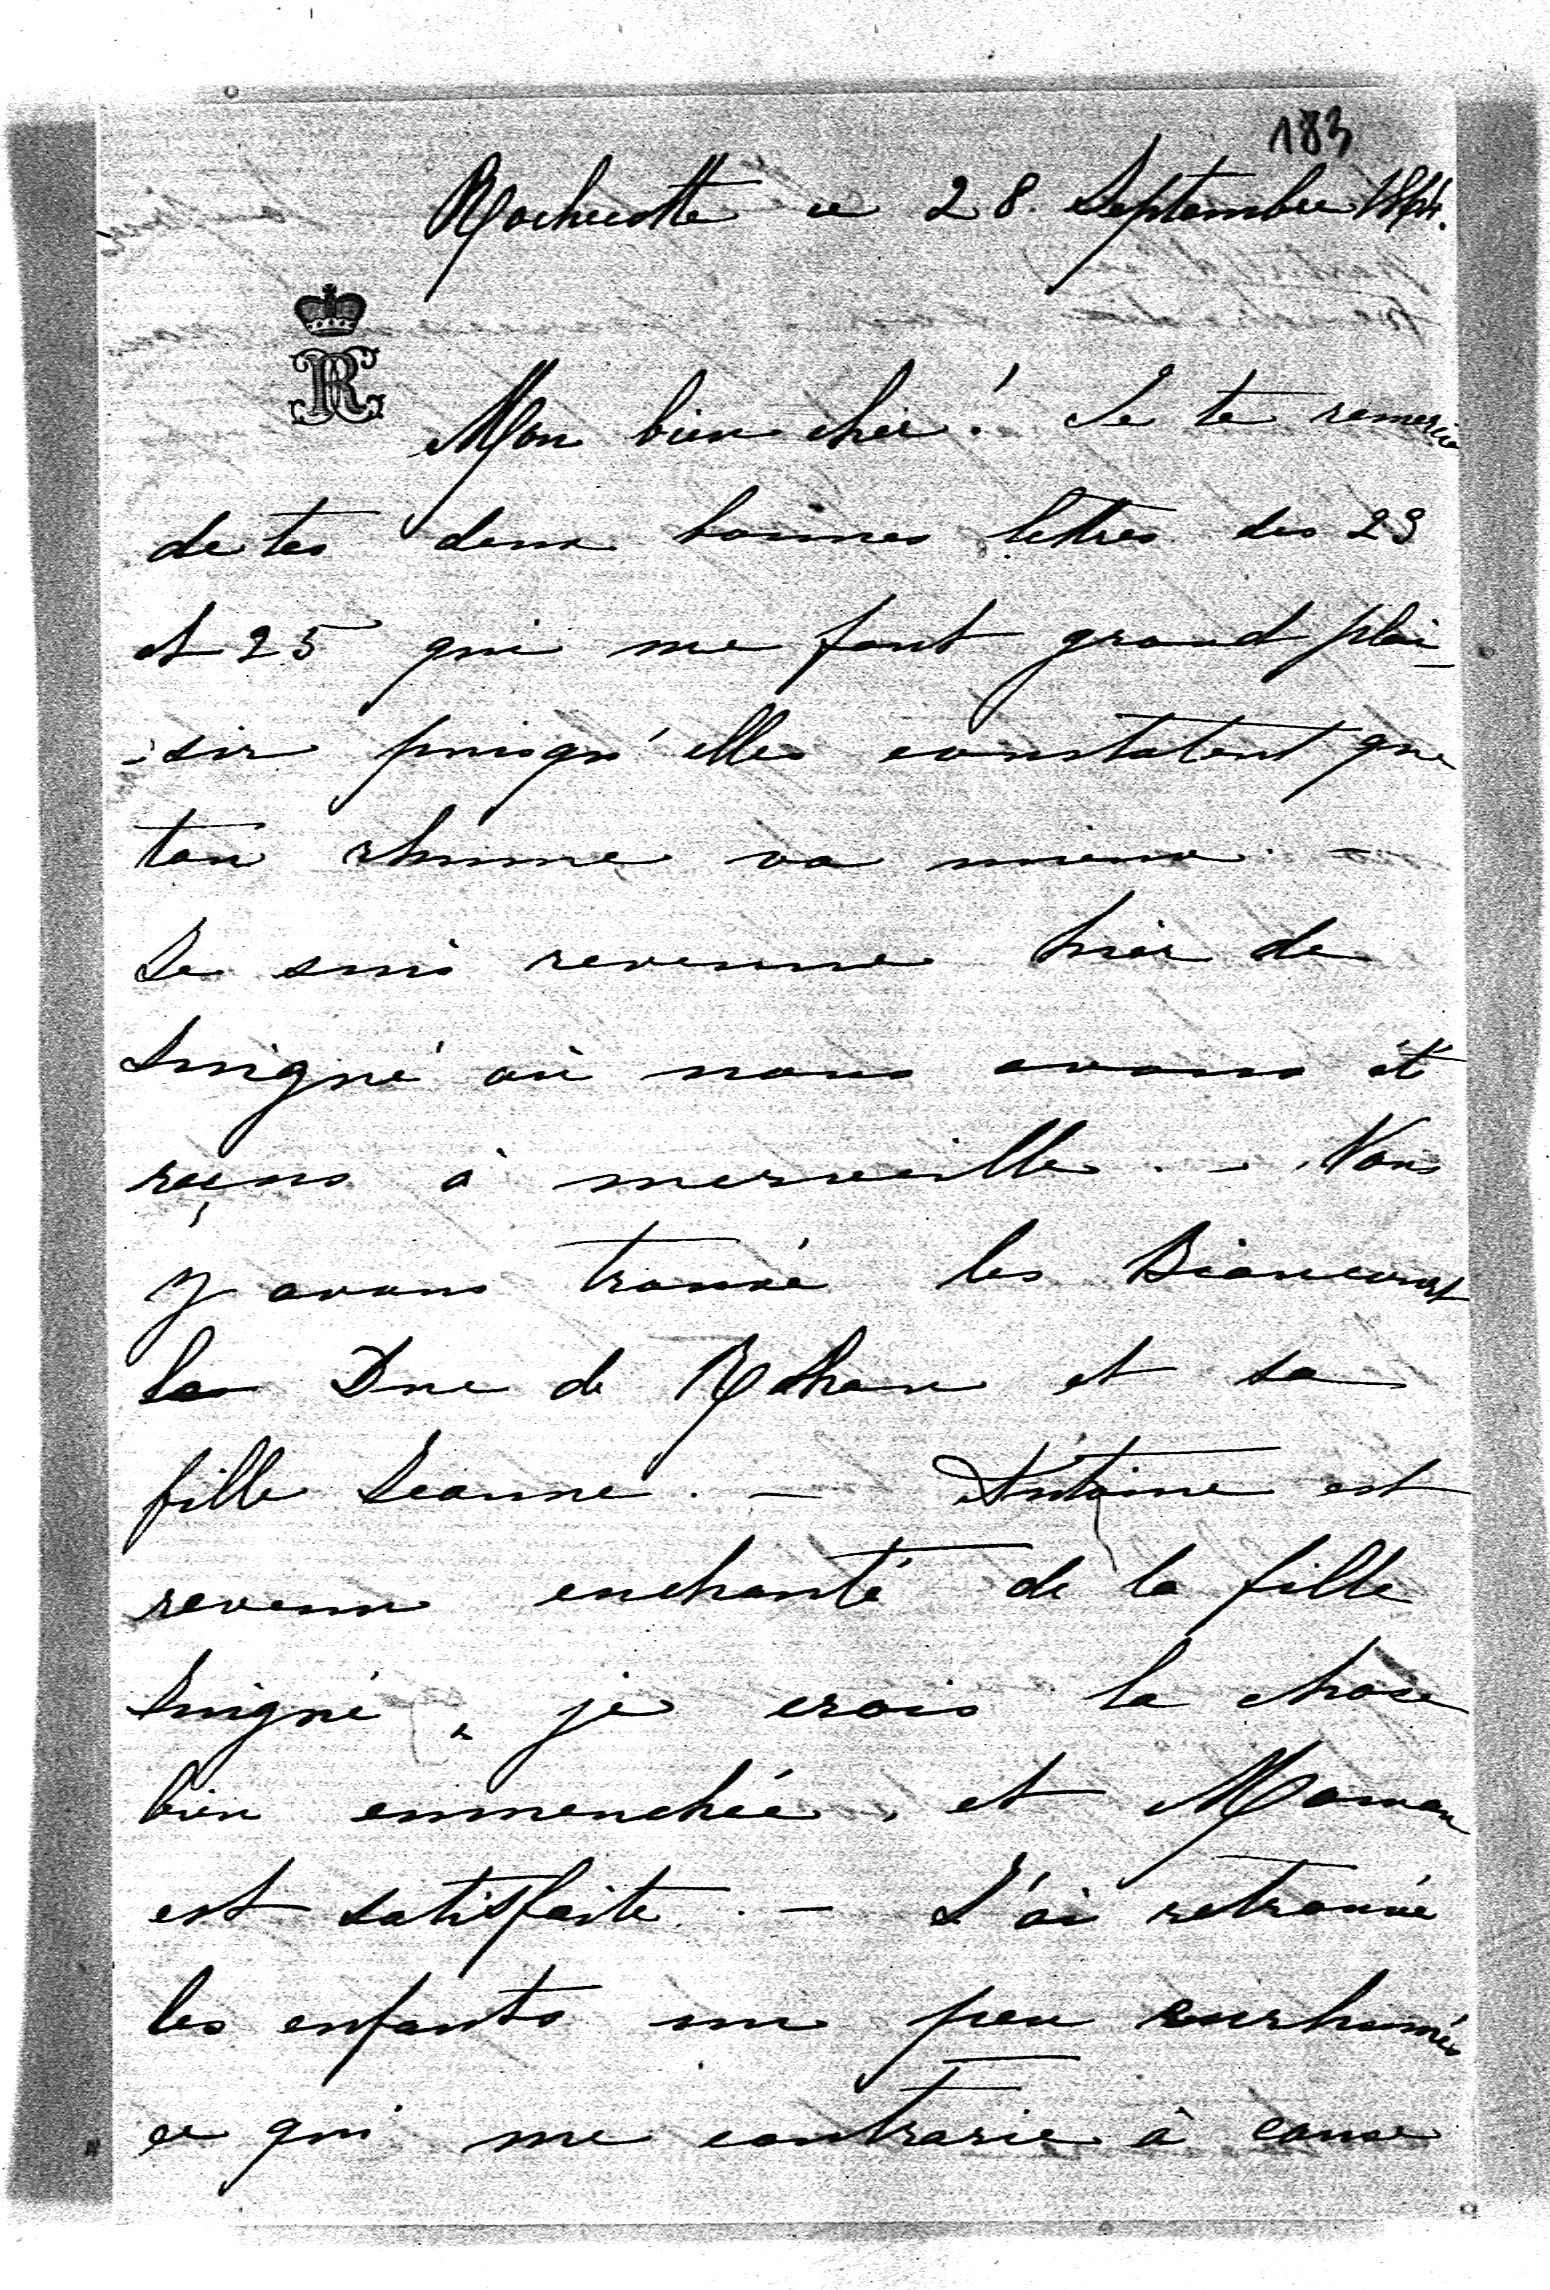 183
Rochecotte ce 28 Septembre
R
Mon bien cher! Je te remercie
de tes deux bonnes lettres des 23
et 25 qui me font grand plai-
-sir puisqu'elles constatent que
ton rhume va mieux. -
Je suis revenue hier de
Serrigné où nous avons été
reçus à merveille. - Nous
y avons trouvé les Biencourt
la Dne de Rohan et sa
fille Jeanne. - Antoine est
revenu enchanté de la fille
je crois la chose
bien emmenchée, et Maman
est satisfaite. - J'ai retrouvé
les enfants un peu enrhumés
ce qui me contrarie à cause